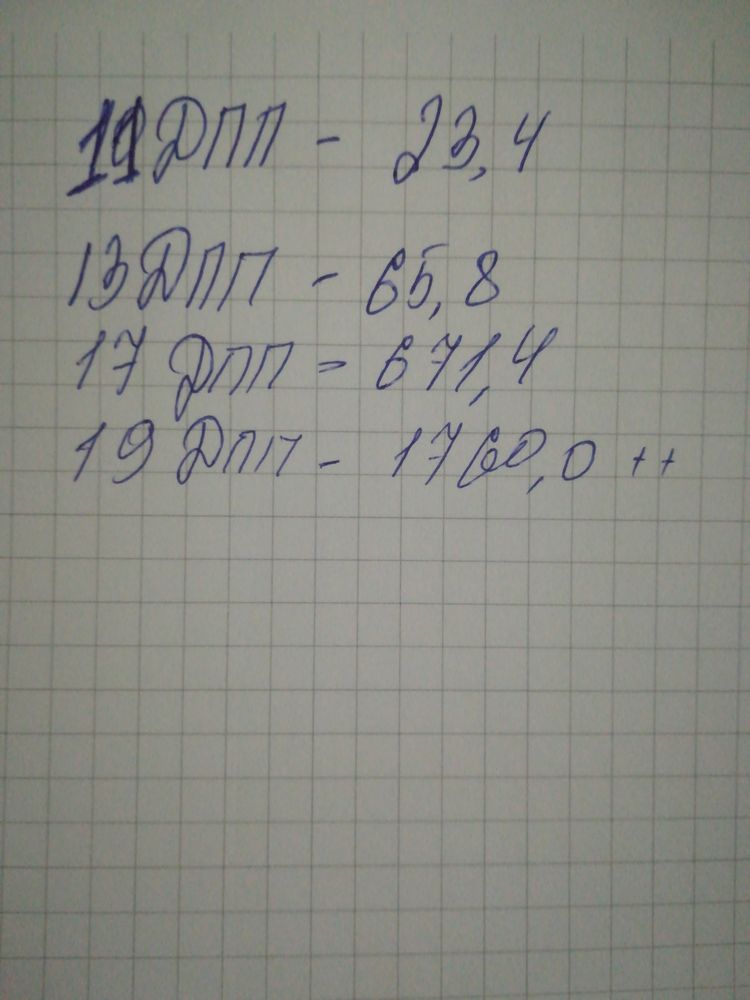 11 ДПП - 23,4
13 ДПП - 65,8
17 ДПП - 671,4
19 ДПП - 1760,0 ++